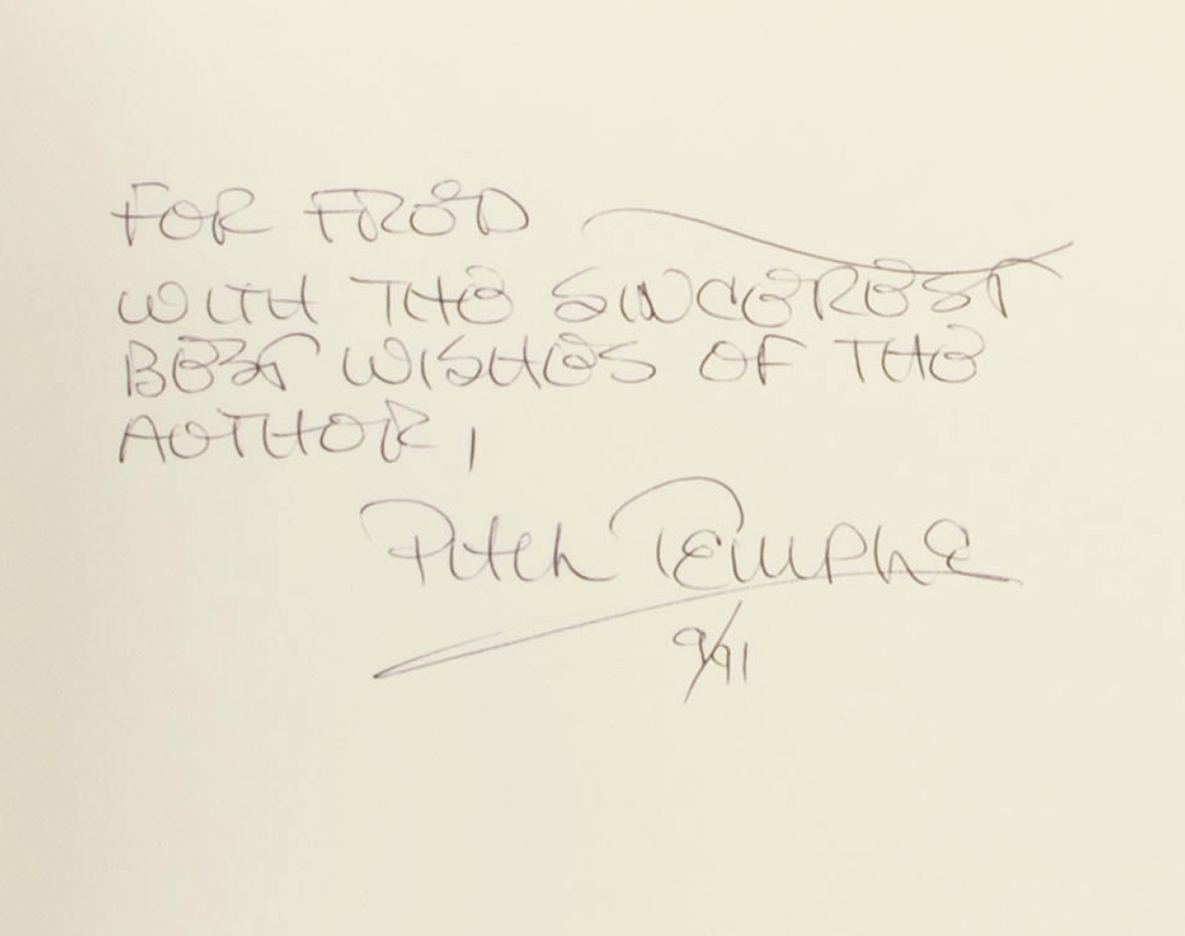 FOR FRED
WITH THE SINCEREST
BEST WISHES OF THE
AUTHOR,
9/91